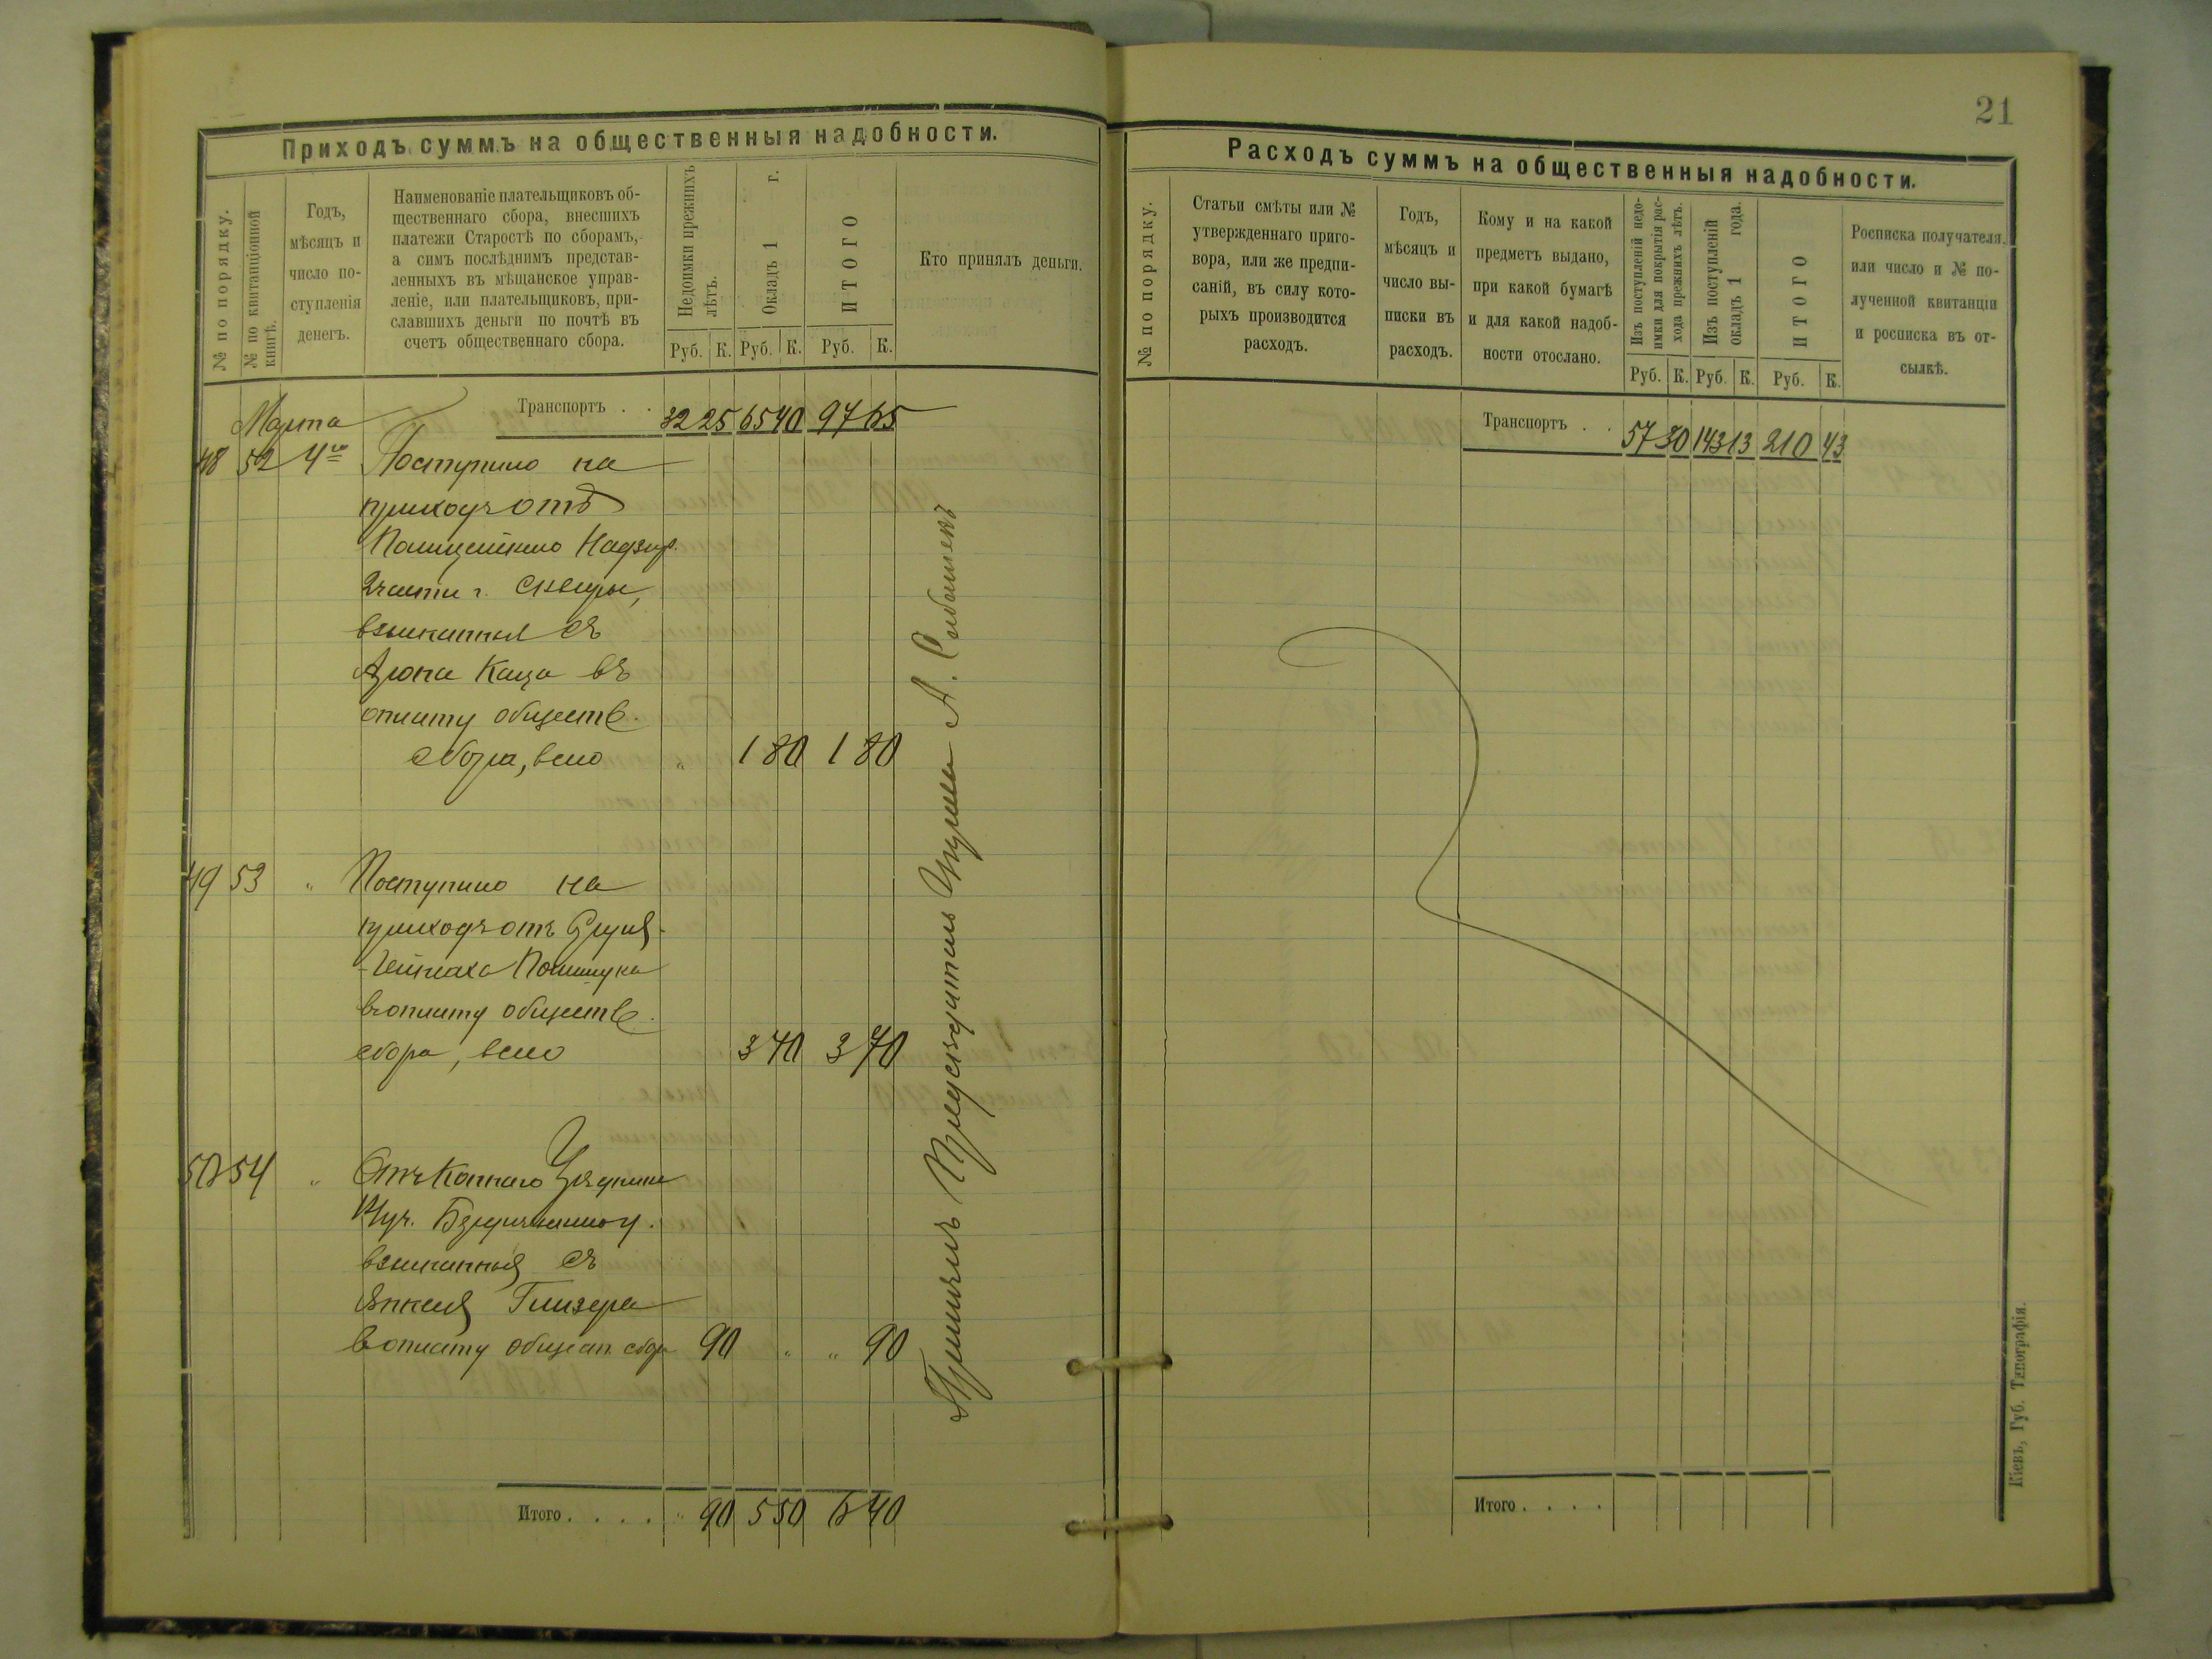 21
Приходъ суммъ на общественныя надобности.
№ по порядку.
№ по квитанціонной
книгѣ.
Годъ,
мѣсяцъ и
число по-
ступленія
денегъ.
Наименованіе плательщиковъ об-
щественнаго сбора, внесшихъ
платежи Старостѣ по сборамъ,
а симъ послѣднимъ представ-
ленныхъ въ мѣщанское управ-
леніе, или плательщиковъ, при-
славшихъ деньги по почтѣ въ
счетъ общественнаго сбора.
Недоимки прежнихъ
лѣтъ.
Окладъ 1 г.
ИТОГО
Руб. К. Руб. К. Руб. К.
Кто принялъ деньги.
Транспортъ . . 32 25 65 40 97 65
Марта
48 52 4го Поступило на
приходъ отъ
Полицейскаго Надзир.
2 части г. Сквиры,
взысканныя съ
Арона Каца въ
оплату обществ.
сбора, всего " 1 80 1 80
49 53 " Поступило на
приходъ отъ
Полищука
въ оплату обществ.
сбора, всего 3 70 3 70
50 54 " Отъ Коннаго Урядника
взысканныя съ
Янкеля Глизера
въ оплату общест. сбора 90 " " 90
Итого . . . . " 90 5 50 6 40
Принялъ Предсѣдатель Управы А.
Расходъ суммъ на общественныя надобности.
№ по порядку.
Статьи смѣты или №
утвержденнаго приго-
вора, или же предпи-
саній, въ силу кото-
рыхъ производится
расходъ.
Годъ,
мѣсяцъ и
число вы-
писки въ
расходъ.
Кому и на какой
предметъ выдано,
при какой бумагѣ
и для какой надоб-
ности отослано.
Изъ поступленій недо-
имки для покрытія рас-
хода прежнихъ лѣтъ.
Изъ поступленій
окладъ 1 года.
ИТОГО
Руб. К. Руб. К. Руб. К.
Росписка получателя,
или число и № по-
лученной квитанціи
и росписка въ от-
сылкѣ.
Транспортъ . . 57 30 143 13 210 43
Итого . . . .
Кіевъ, Губ. Типографія.